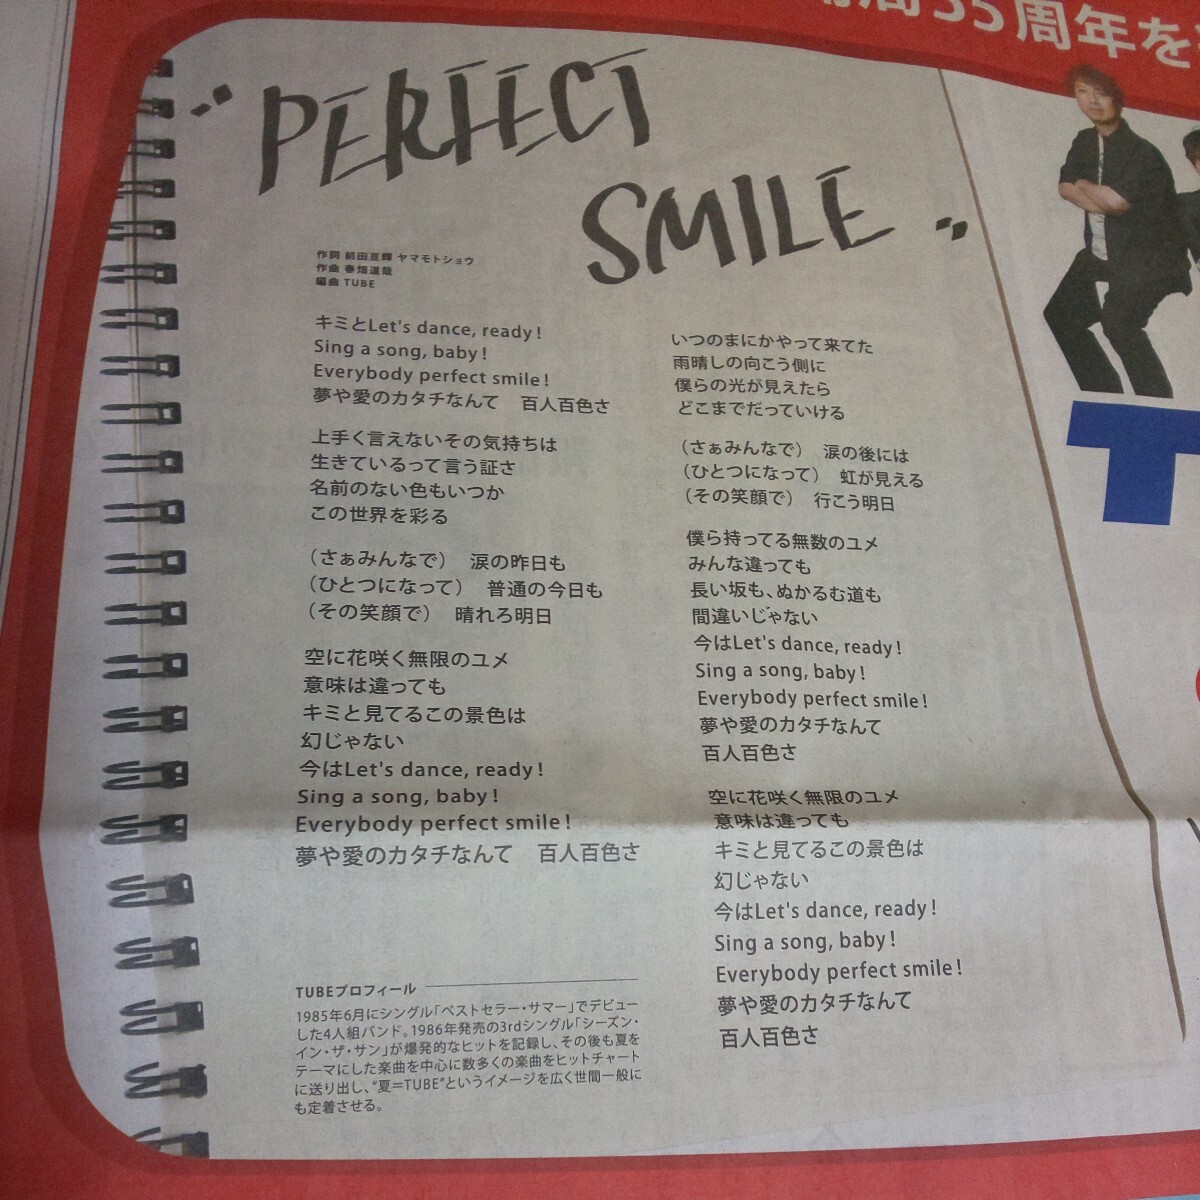 35周年を
"PERFECT
SMILE"
作詞 前田亘輝 ヤマモトショウ
作曲 春畑道哉
編曲 TUBE
キミとLet's dance, ready!
Sing a song, baby!
Everybody perfect smile!
夢や愛のカタチなんて 百人百色さ
上手く言えないその気持ちは
生きているって言う証さ
名前のない色もいつか
この世界を彩る
(さぁみんなで) 涙の昨日も
(ひとつになって) 普通の今日も
(その笑顔で) 晴れろ明日
空に花咲く無限のユメ
意味は違っても
キミと見てるこの景色は
幻じゃない
今はLet's dance, ready!
Sing a song, baby!
Everybody perfect smile!
夢や愛のカタチなんて 百人百色さ
いつのまにかやって来てた
雨晴しの向こう側に
僕らの光が見えたら
どこまでだっていける
(さぁみんなで) 涙の後には
(ひとつになって) 虹が見える
(その笑顔で) 行こう明日
僕ら持ってる無数のユメ
みんな違っても
長い坂も、ぬかるむ道も
間違いじゃない
今はLet's dance, ready!
Sing a song, baby!
Everybody perfect smile!
夢や愛のカタチなんて
百人百色さ
空に花咲く無限のユメ
意味は違っても
キミと見てるこの景色は
幻じゃない
今はLet's dance, ready!
Sing a song, baby!
Everybody perfect smile!
夢や愛のカタチなんて
百人百色さ
TUBEプロフィール
1985年6月にシングル「ベストセラー・サマー」でデビュー
した4人組バンド。1986年発売の3rdシングル「シーズン・
イン・ザ・サン」が爆発的なヒットを記録し、その後も夏を
テーマにした楽曲を中心に数多くの楽曲をヒットチャート
に送り出し、"夏=TUBE"というイメージを広く世間一般に
も定着させる。
T